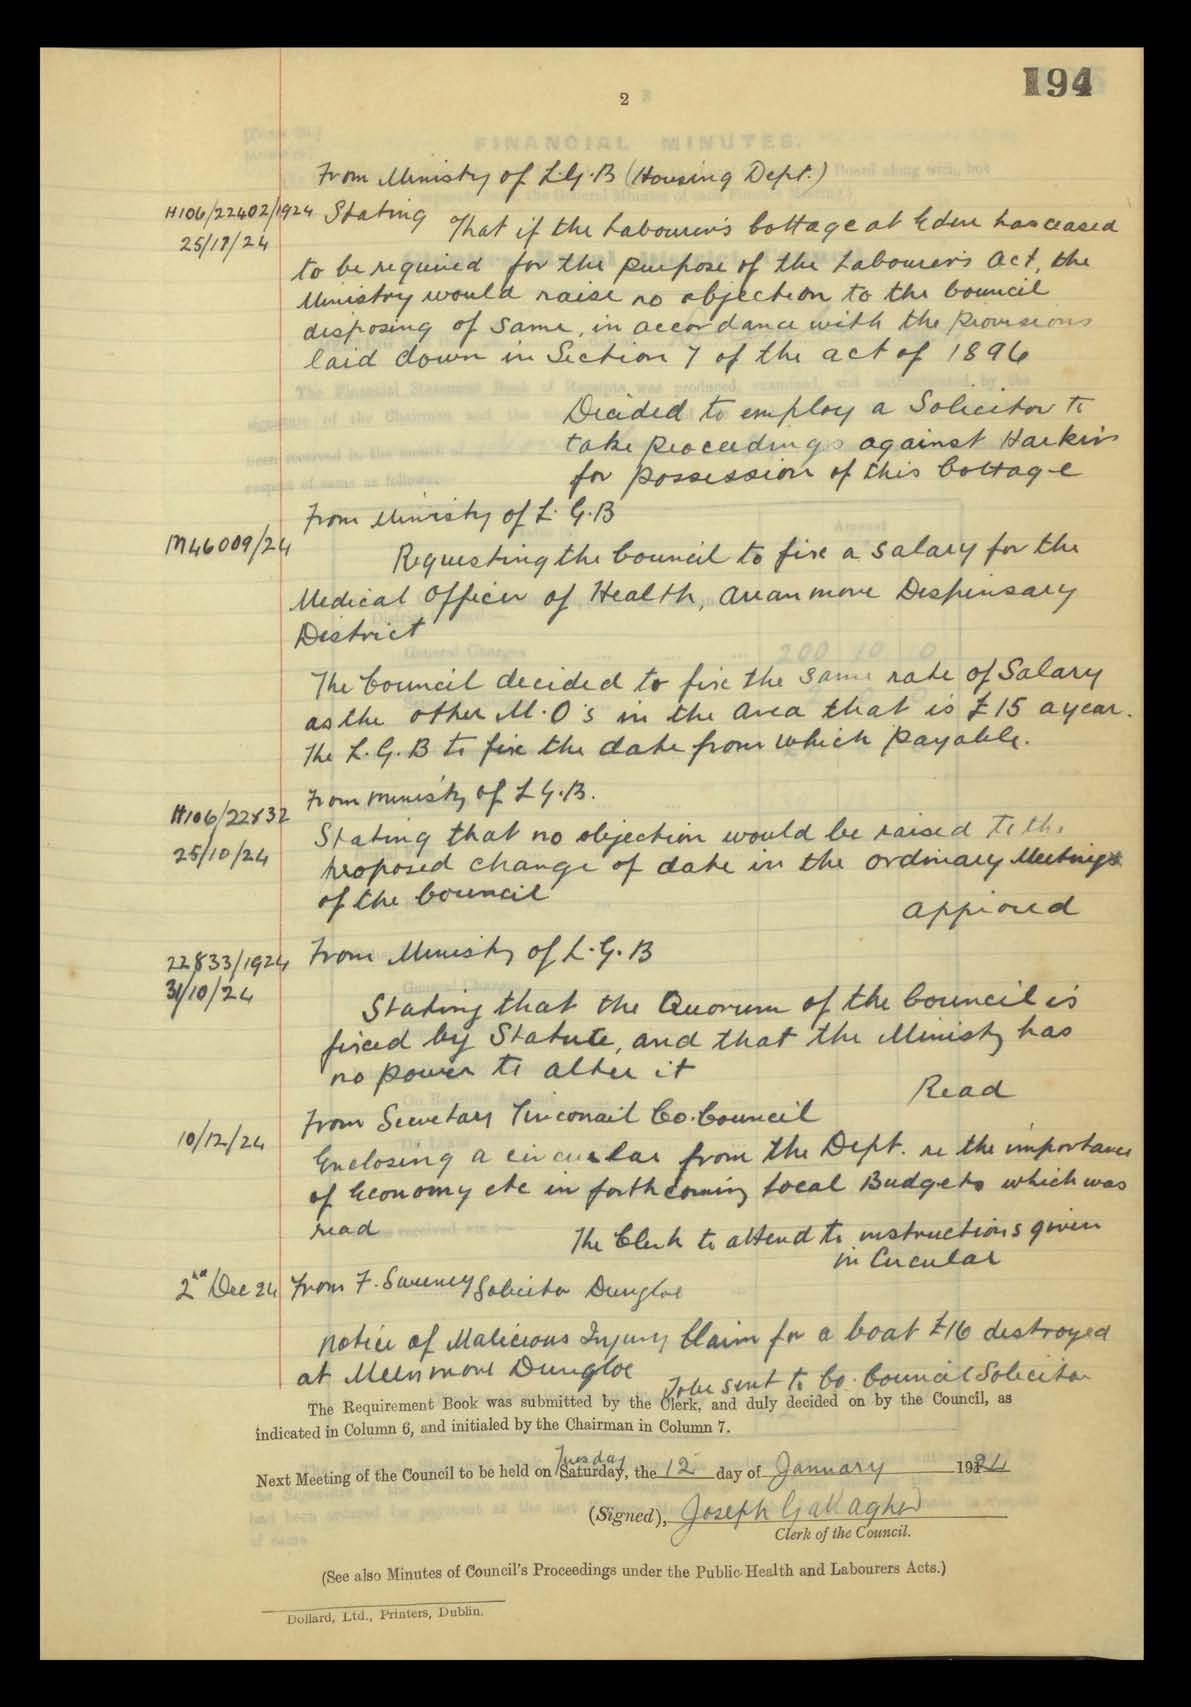 194
2
From Ministry of L.G.B (Housing Dept.)
H106/22402/1924 Stating That if the Labourer's Cottage at Eden has ceased
25/11/24
to be required for the purpose of the Labourer's Act, the
Ministry would raise no objection to the Council
disposing of same, in accordance with the provisions
laid down in Section 7 of the act of 1896
Decided to employ a Solicitor to
take proceedings against Harkin
for possession of this Cottage
From Ministry of L. G.B
M46009/24
Requesting the Council to fix a salary for the
Medical Officer of Health, Aranmore Dispensary
District
The Council decided to fix the same rate of Salary
as the other M.O's in the area that is £15 a year.
The L.G.B to fix the date from which payable.
From Ministry of L G.B.
H106/22832
Stating that no objection would be raised to the
25/10/24
proposed change of date in the ordinary Meetings
of the Council
approved
From Ministry of L.G.B
22833/1924
31/10/24
Stating that the Quorum of the Council is
fixed by Statute, and that the Ministry has
no power to alter it
Read
From Secretary Tirconail Co. Council
10/12/24
Enclosing a circular from the Dept. re the importance
of Economy etc in forthcoming Local Budgets which was
read
The Clerk to attend to instructions given
in Circular
2nd Dec 24 From F. Sweeney Solicitor Dungloe
Notice of Malicious Injury Claim for a boat £16 destroyed
at Meenmore Dungloe
To be sent to Co. Council Solicitor
The Requirement Book was submitted by the Clerk, and duly decided on by the Council, as
indicated in Column 6, and initialed by the Chairman in Column 7.
Tuesday
Next Meeting of the Council to be held on Saturday, the 12 day of January 1924
(Signed), Joseph Gallagher
Clerk of the Council.
(See also Minutes of Council's Proceedings under the Public Health and Labourers Acts.)
Dollard, Ltd., Printers, Dublin.